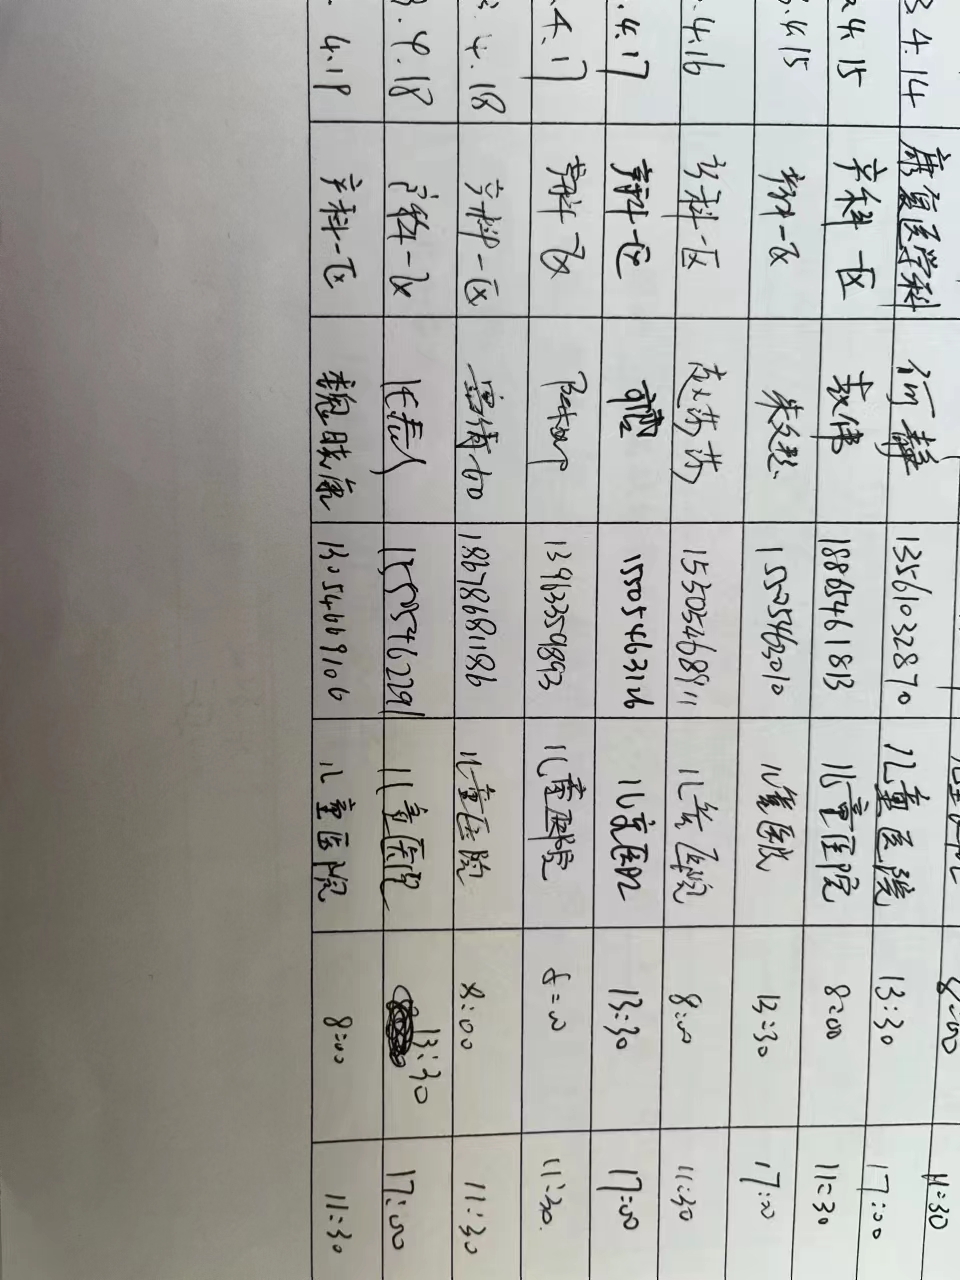 儿童医院 8:00 11:30
3 4.14 康复医学科 何静 13561032870 儿童医院 13:30 17:00
4.15 产科一区 袁伟 18865461813 儿童医院 8:00 11:30
4.15 产科一区 15505463010 儿童医院 13:30 17:00
4.16 产科一区 赵苏苏 15305468911 儿童医院 8:00 11:30
4.17 产科一区 15505463126 儿童医院 13:30 17:00
4.17 产科一区 儿童医院 8:00 11:30
4.18 产科一区 18678681986 儿童医院 8:00 11:30
4.18 产科一区 15505462291 儿童医院 13:30 17:00
4.19 产科一区 魏晓康 儿童医院 8:00 11:30